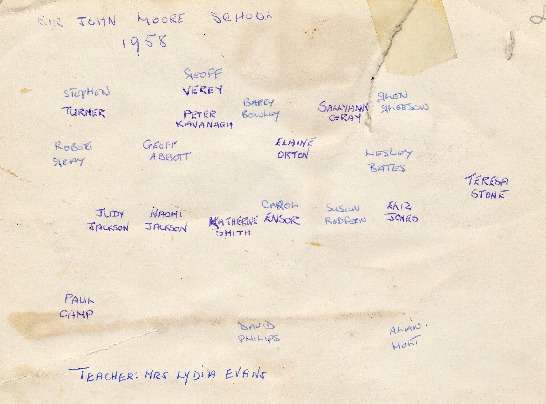 SIR JOHN MOORE SCHOOL
1958
GEOFF
VEREY
STEPHEN
TURNER
PETER
KAVANAGH
BARRY
BOWLEY
SALLYANN
GRAY
GWEN
ROBERT
GRAY
GEOFF
ABBOTT
ELAINE
ORTON
LESLEY
BATES
TERESA
STONE
JUDY
JACKSON
NAOMI
JACKSON
KATHERINE
SMITH
CAROL
ENSOR
SUSAN
REDFERN
ERIZ
JONES
PAUL
CAMP
DAVID
PHILIPS
ALAN
HOLT
TEACHER: MRS LYDIA EVANS